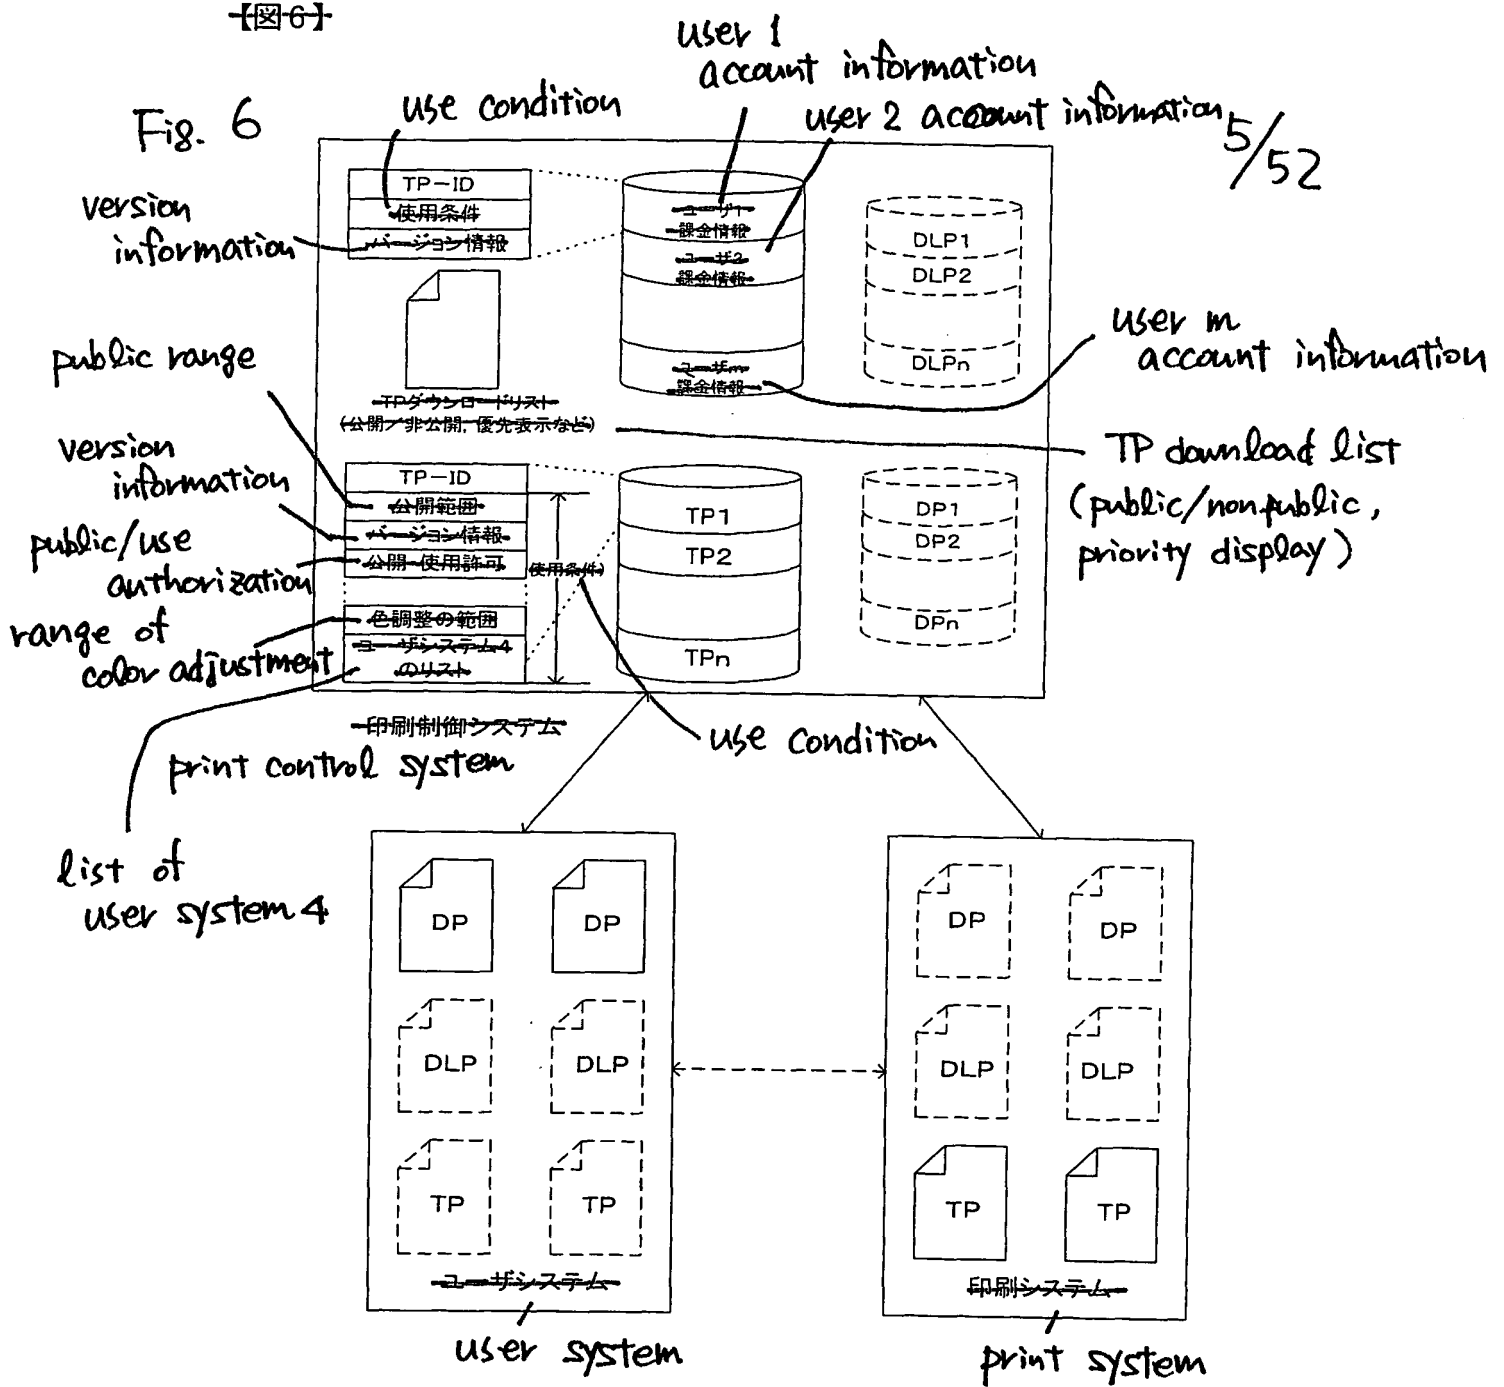 【図6】
Fig. 6
5/52
user 1
account information
use condition
user 2 account information
version
information
TP-ID
使用条件
バージョン情報
ユーザ1
課金情報
ユーザ2
課金情報
ユーザm
課金情報
DLP1
DLP2
DLPn
user m
account information
public range
TPダウンロードリスト
(公開/非公開, 優先表示など)
TP download list
(public/nonpublic,
priority display)
version
information
public/use
authorization
range of
color adjustment
TP-ID
公開範囲
バージョン情報
公開・使用許可
色調整の範囲
ユーザシステム4
のリスト
(使用条件)
TP1
TP2
TPn
DP1
DP2
DPn
印刷制御システム
print control system
use condition
list of
user system 4
DP
DP
DLP
DLP
TP
TP
ユーザシステム
user system
DP
DP
DLP
DLP
TP
TP
印刷システム
print system